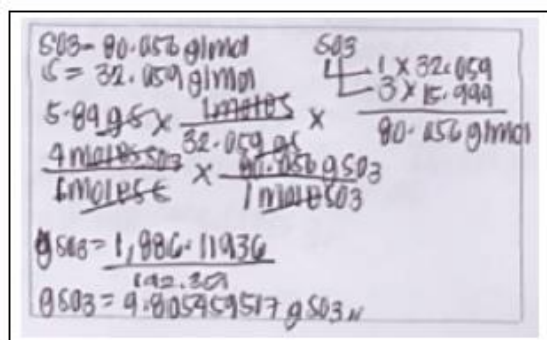 SO3 - 80.056 g/mol
S = 32.059 g/mol
SO3
1 x 32.059
3 x 15.999
80.056 g/mol
5.89 g S x 1 mole S x
32.059 g S
4 moles SO3 x 80.056 g SO3
6 moles S 1 mole SO3
g SO3 = 1,886.11936
192.354
g SO3 = 9.805459517 g SO3 //